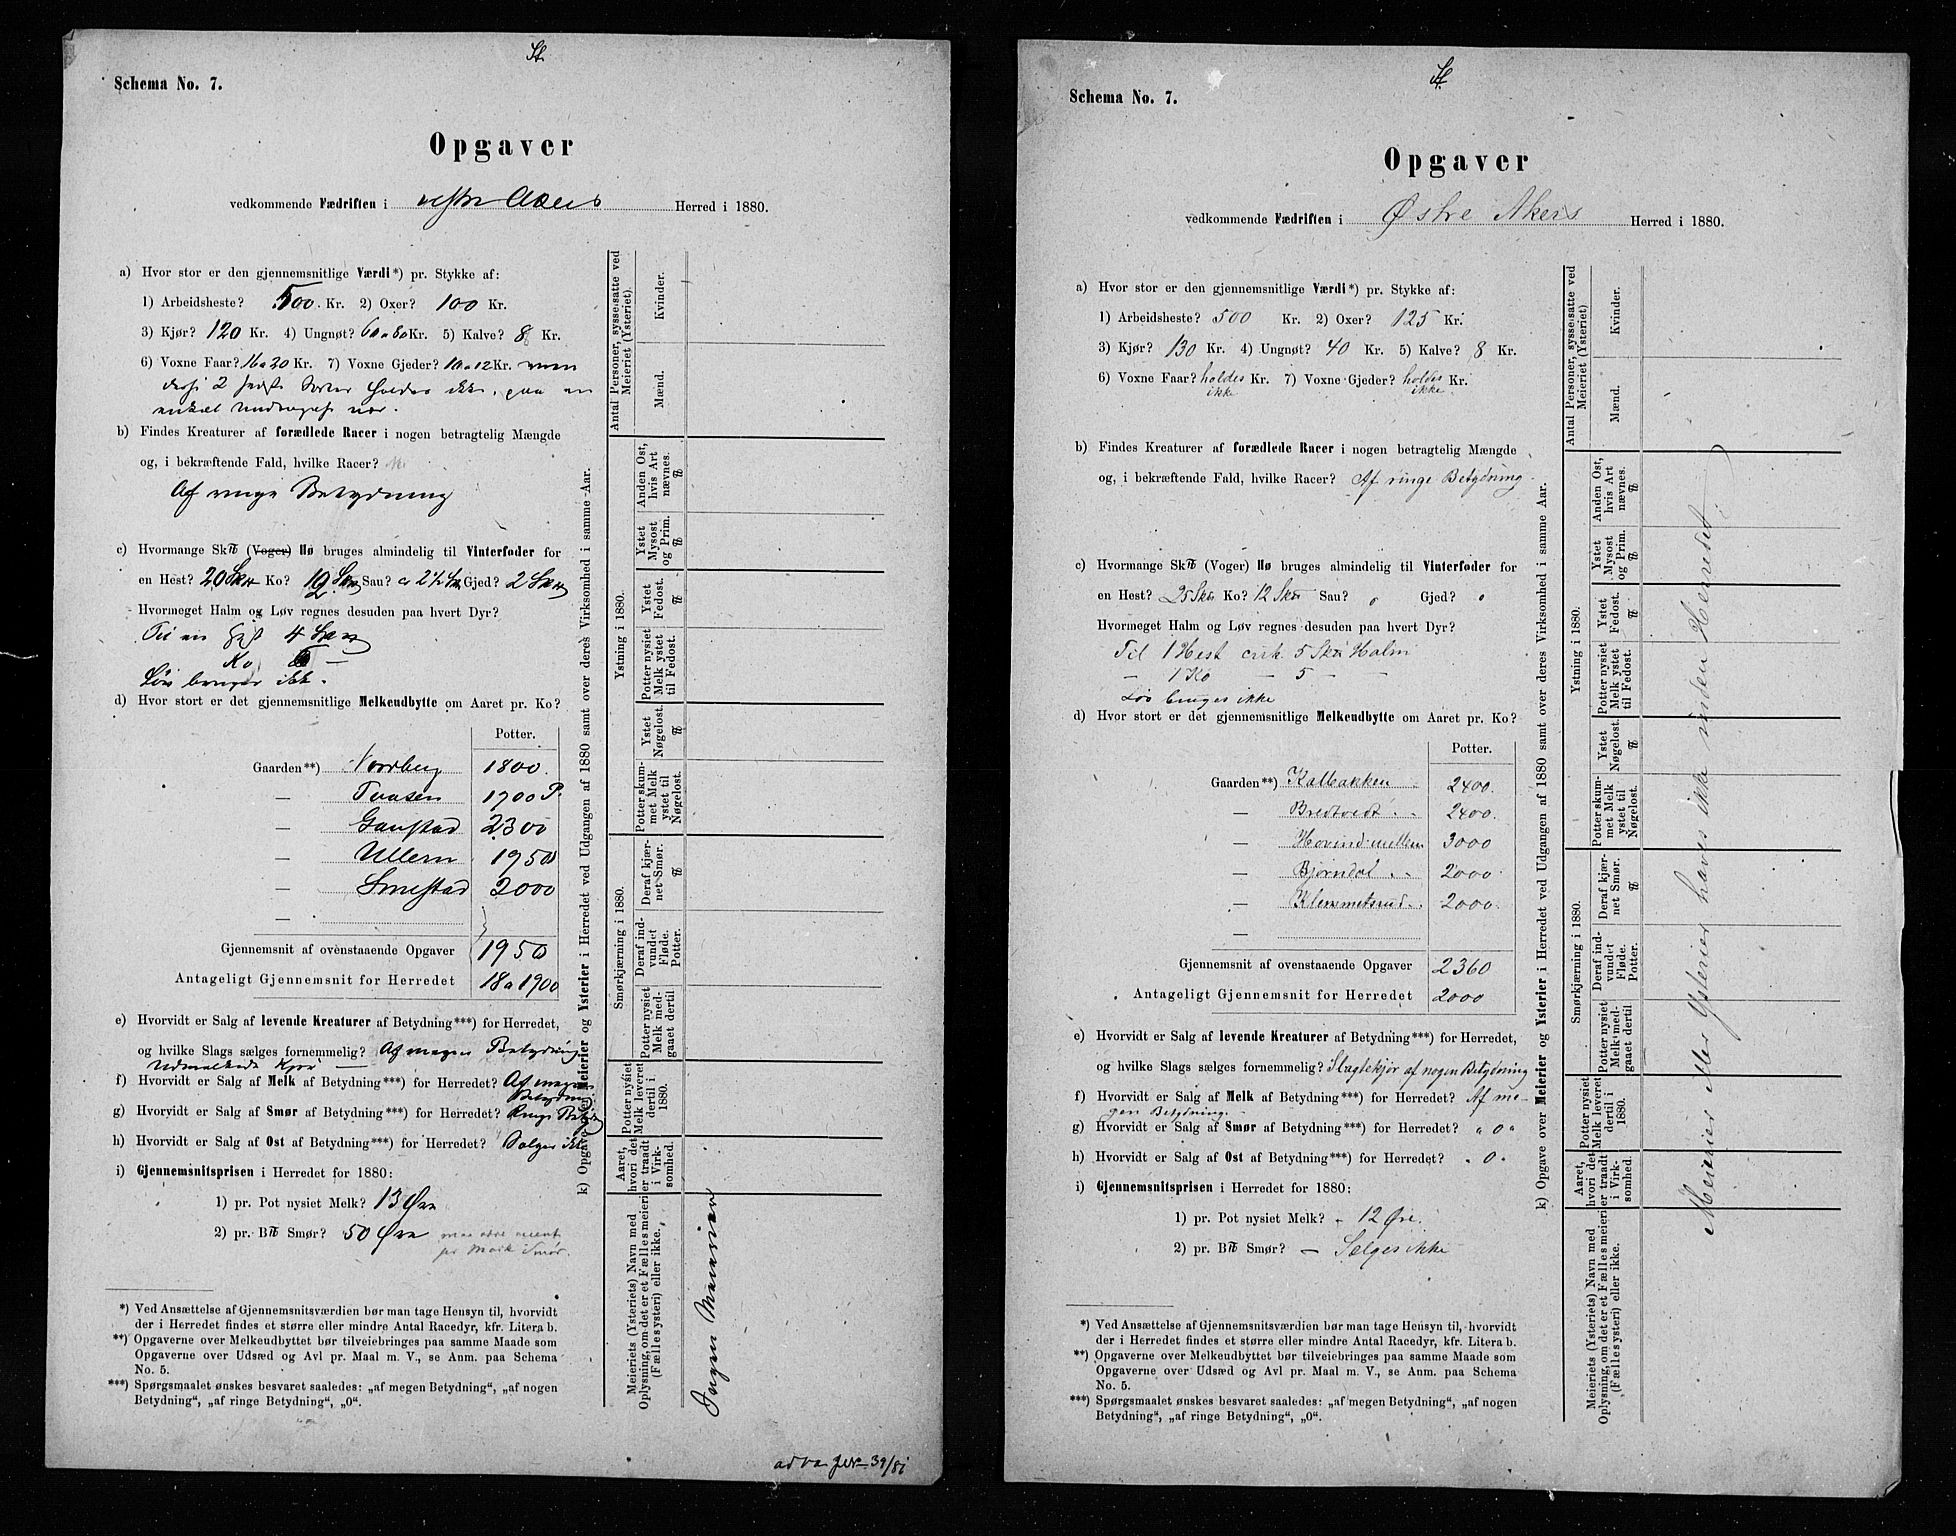 St.
Schema No. 7.
Opgaver
vedkommende Fædriften i vestre Akers Herred i 1880.
a) Hvor stor er den gjennemsnitlige Værdi*) pr. Stykke af:
1) Arbeidsheste? 500. Kr. 2) Oxer? 100 Kr.
3) Kjør? 120 Kr. 4) Ungnøt? 60 a 80 Kr. 5) Kalve? 8 Kr.
6) Voxne Faar? 16 a 20 Kr. 7) Voxne Gjeder? 10 a 12 Kr. men
2 Sorter holdes ikke, paa en
enkel Undtagelse nær.
b) Findes Kreaturer af forædlede Racer i nogen betragtelig Mængde
og, i bekræftende Fald, hvilke Racer?
Af ringe Betydning
c) Hvormange Sk℔ (Voger) Hø bruges almindelig til Vinterfoder for
en Hest? 20 Sk℔ Ko? 12 Sk℔ Sau? 2½ Sk℔ Gjed? 2 Sk℔
Hvormeget Halm og Løv regnes desuden paa hvert Dyr?
Til en Hest 4 Sk℔
Ko 6 —
Løv bruges ikke.
d) Hvor stort er det gjennemsnitlige Melkeudbytte om Aaret pr. Ko?
Potter.
Gaarden**) Nordberg 1800.
— Taasen 1700 P.
— Gaustad 2300
— Ullern 1950
— Smestad 2000
—
Gjennemsnit af ovenstaaende Opgaver 1950
Antageligt Gjennemsnit for Herredet 18 a 1900
e) Hvorvidt er Salg af levende Kreaturer af Betydning***) for Herredet,
og hvilke Slags sælges fornemmelig? Af megen Betydning
Udmalkede Kjør —
f) Hvorvidt er Salg af Melk af Betydning***) for Herredet? Af megen
Betydning
g) Hvorvidt er Salg af Smør af Betydning***) for Herredet? Ringe Betydn
h) Hvorvidt er Salg af Ost af Betydning***) for Herredet? Sælges ikke
i) Gjennemsnitsprisen i Herredet for 1880:
1) pr. Pot nysiet Melk? 13 Øre
2) pr. B℔ Smør? 50 Øre
pr Mark Smør.
*) Ved Ansættelse af Gjennemsnitsværdien bør man tage Hensyn til, hvorvidt
der i Herredet findes et større eller mindre Antal Racedyr, kfr. Litera b.
**) Opgaverne over Melkeudbyttet bør tilveiebringes paa samme Maade som
Opgaverne over Udsæd og Avl pr. Maal m. V., se Anm. paa Schema
No. 5.
***) Spørgsmaalet ønskes besvaret saaledes: „af megen Betydning“, „af nogen
Betydning“, „af ringe Betydning“, „0“.
k) Opgave over Meierier og Ysterier i Herredet ved Udgangen af 1880 samt over deres Virksomhed i samme Aar.
Meieriets (Ysteriets) Navn med
Oplysning, om det er et Fællesmeieri
(Fællesysteri) eller ikke.
Aaret,
hvori det
er traadt
i Virk-
somhed.
Potter nysiet
Melk leveret
dertil i
1880.
Smørkjærning i 1880.
Potter nysiet
Melk med-
gaaet dertil
Deraf ind-
vundet
Fløde.
Potter.
Deraf kjær-
net Smør.
℔
Ystning i 1880.
Potter skum-
met Melk
ystet til
Nøgelost.
Ystet
Nøgelost.
℔
Potter nysiet
Melk ystet
til Fedost.
Ystet
Fedost.
℔
Ystet
Mysost
og Prim.
℔
Anden Ost,
hvis Art
nævnes.
℔
Antal Personer, sysselsatte ved
Meieriet (Ysteriet).
Mænd.
Kvinder.
Ingen Meierier
39/81
St.
Schema No. 7.
Opgaver
vedkommende Fædriften i Østre Akers Herred i 1880.
a) Hvor stor er den gjennemsnitlige Værdi*) pr. Stykke af:
1) Arbeidsheste? 500 Kr. 2) Oxer? 125 Kr.
3) Kjør? 130 Kr. 4) Ungnøt? 40 Kr. 5) Kalve? 8 Kr.
6) Voxne Faar? holdes Kr. 7) Voxne Gjeder? holdes Kr.
ikke ikke
b) Findes Kreaturer af forædlede Racer i nogen betragtelig Mængde
og, i bekræftende Fald, hvilke Racer? Af ringe Betydning.
c) Hvormange Sk℔ (Voger) Hø bruges almindelig til Vinterfoder for
en Hest? 25 Sk℔ Ko? 12 Sk℔ Sau? 0 Gjed? 0
Hvormeget Halm og Løv regnes desuden paa hvert Dyr?
Til 1 Hest cirk. 5 Sk℔ Halm
— 1 Ko — 5 — —
Løv bruges ikke
d) Hvor stort er det gjennemsnitlige Melkeudbytte om Aaret pr. Ko?
Potter.
Gaarden**) Kalbakken 2400.
— Bredtvedt 2400.
— Hovind mellem 3000
— Bjørndal 2000.
— Klemmetsrud 2000.
—
Gjennemsnit af ovenstaaende Opgaver 2360
Antageligt Gjennemsnit for Herredet 2000
e) Hvorvidt er Salg af levende Kreaturer af Betydning***) for Herredet,
og hvilke Slags sælges fornemmelig? Slagtekjør af nogen Betydning
f) Hvorvidt er Salg af Melk af Betydning***) for Herredet? Af me-
gen Betydning. —
g) Hvorvidt er Salg af Smør af Betydning***) for Herredet? „ 0 „
h) Hvorvidt er Salg af Ost af Betydning***) for Herredet? „ 0 „
i) Gjennemsnitsprisen i Herredet for 1880:
1) pr. Pot nysiet Melk? — 12 Øre.
2) pr. B℔ Smør? — Sælges ikke
*) Ved Ansættelse af Gjennemsnitsværdien bør man tage Hensyn til, hvorvidt
der i Herredet findes et større eller mindre Antal Racedyr, kfr. Litera b.
**) Opgaverne over Melkeudbyttet bør tilveiebringes paa samme Maade som
Opgaverne over Udsæd og Avl pr. Maal m. V., se Anm. paa Schema
No. 5.
***) Spørgsmaalet ønskes besvaret saaledes: „af megen Betydning“, „af nogen
Betydning“, „af ringe Betydning“, „0“.
k) Opgave over Meierier og Ysterier i Herredet ved Udgangen af 1880 samt over deres Virksomhed i samme Aar.
Meieriets (Ysteriets) Navn med
Oplysning, om det er et Fællesmeieri
(Fællesysteri) eller ikke.
Aaret,
hvori det
er traadt
i Virk-
somhed.
Potter nysiet
Melk leveret
dertil i
1880.
Smørkjærning i 1880.
Potter nysiet
Melk med-
gaaet dertil
Deraf ind-
vundet
Fløde.
Potter.
Deraf kjær-
net Smør.
℔
Ystning i 1880.
Potter skum-
met Melk
ystet til
Nøgelost.
Ystet
Nøgelost.
℔
Potter nysiet
Melk ystet
til Fedost.
Ystet
Fedost.
℔
Ystet
Mysost
og Prim.
℔
Anden Ost,
hvis Art
nævnes.
℔
Antal Personer, sysselsatte ved
Meieriet (Ysteriet)
Mænd.
Kvinder.
Meierier eller Ysterier haves ikke inden Herredet.